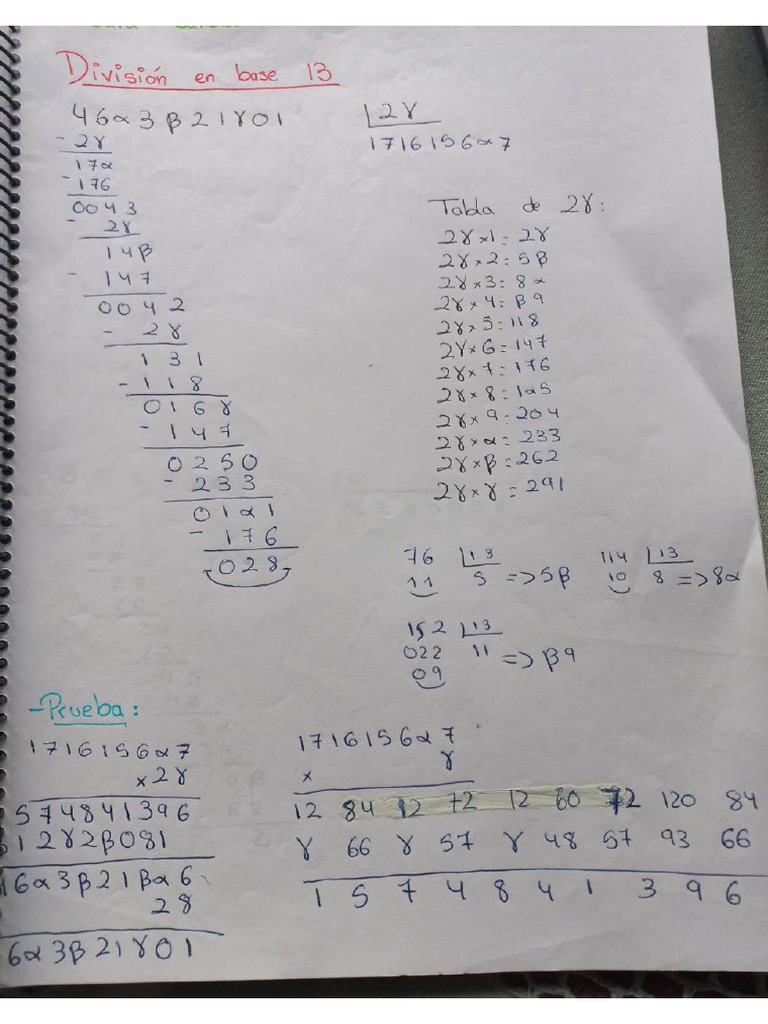 División en base 13
46α3β21γ01 2γ
- 2γ 1716156α7
17α
- 176
0043
- 2γ
14β
- 147
0042
- 2γ
131
- 118
016γ
- 147
0250
- 233
01α1
- 176
028
Tabla de 2γ:
2γ×1=2γ
2γ×2=5β
2γ×3=8α
2γ×4=β9
2γ×5=118
2γ×6=147
2γ×7=176
2γ×8=1α5
2γ×9=204
2γ×α=233
2γ×β=262
2γ×γ=291
76 13 114 13
11 5 =>5β 10 8 =>8α
152 13
022 11 => β9
09
- Prueba:
1716156α7
×2γ
574841396
12γ2β081
6α3β21βα6
28
6α3β21γ01
1716156α7
× γ
12 84 12 72 12 60 72 120 84
γ 66 γ 57 γ 48 57 93 66
1 5 7 4 8 4 1 3 9 6